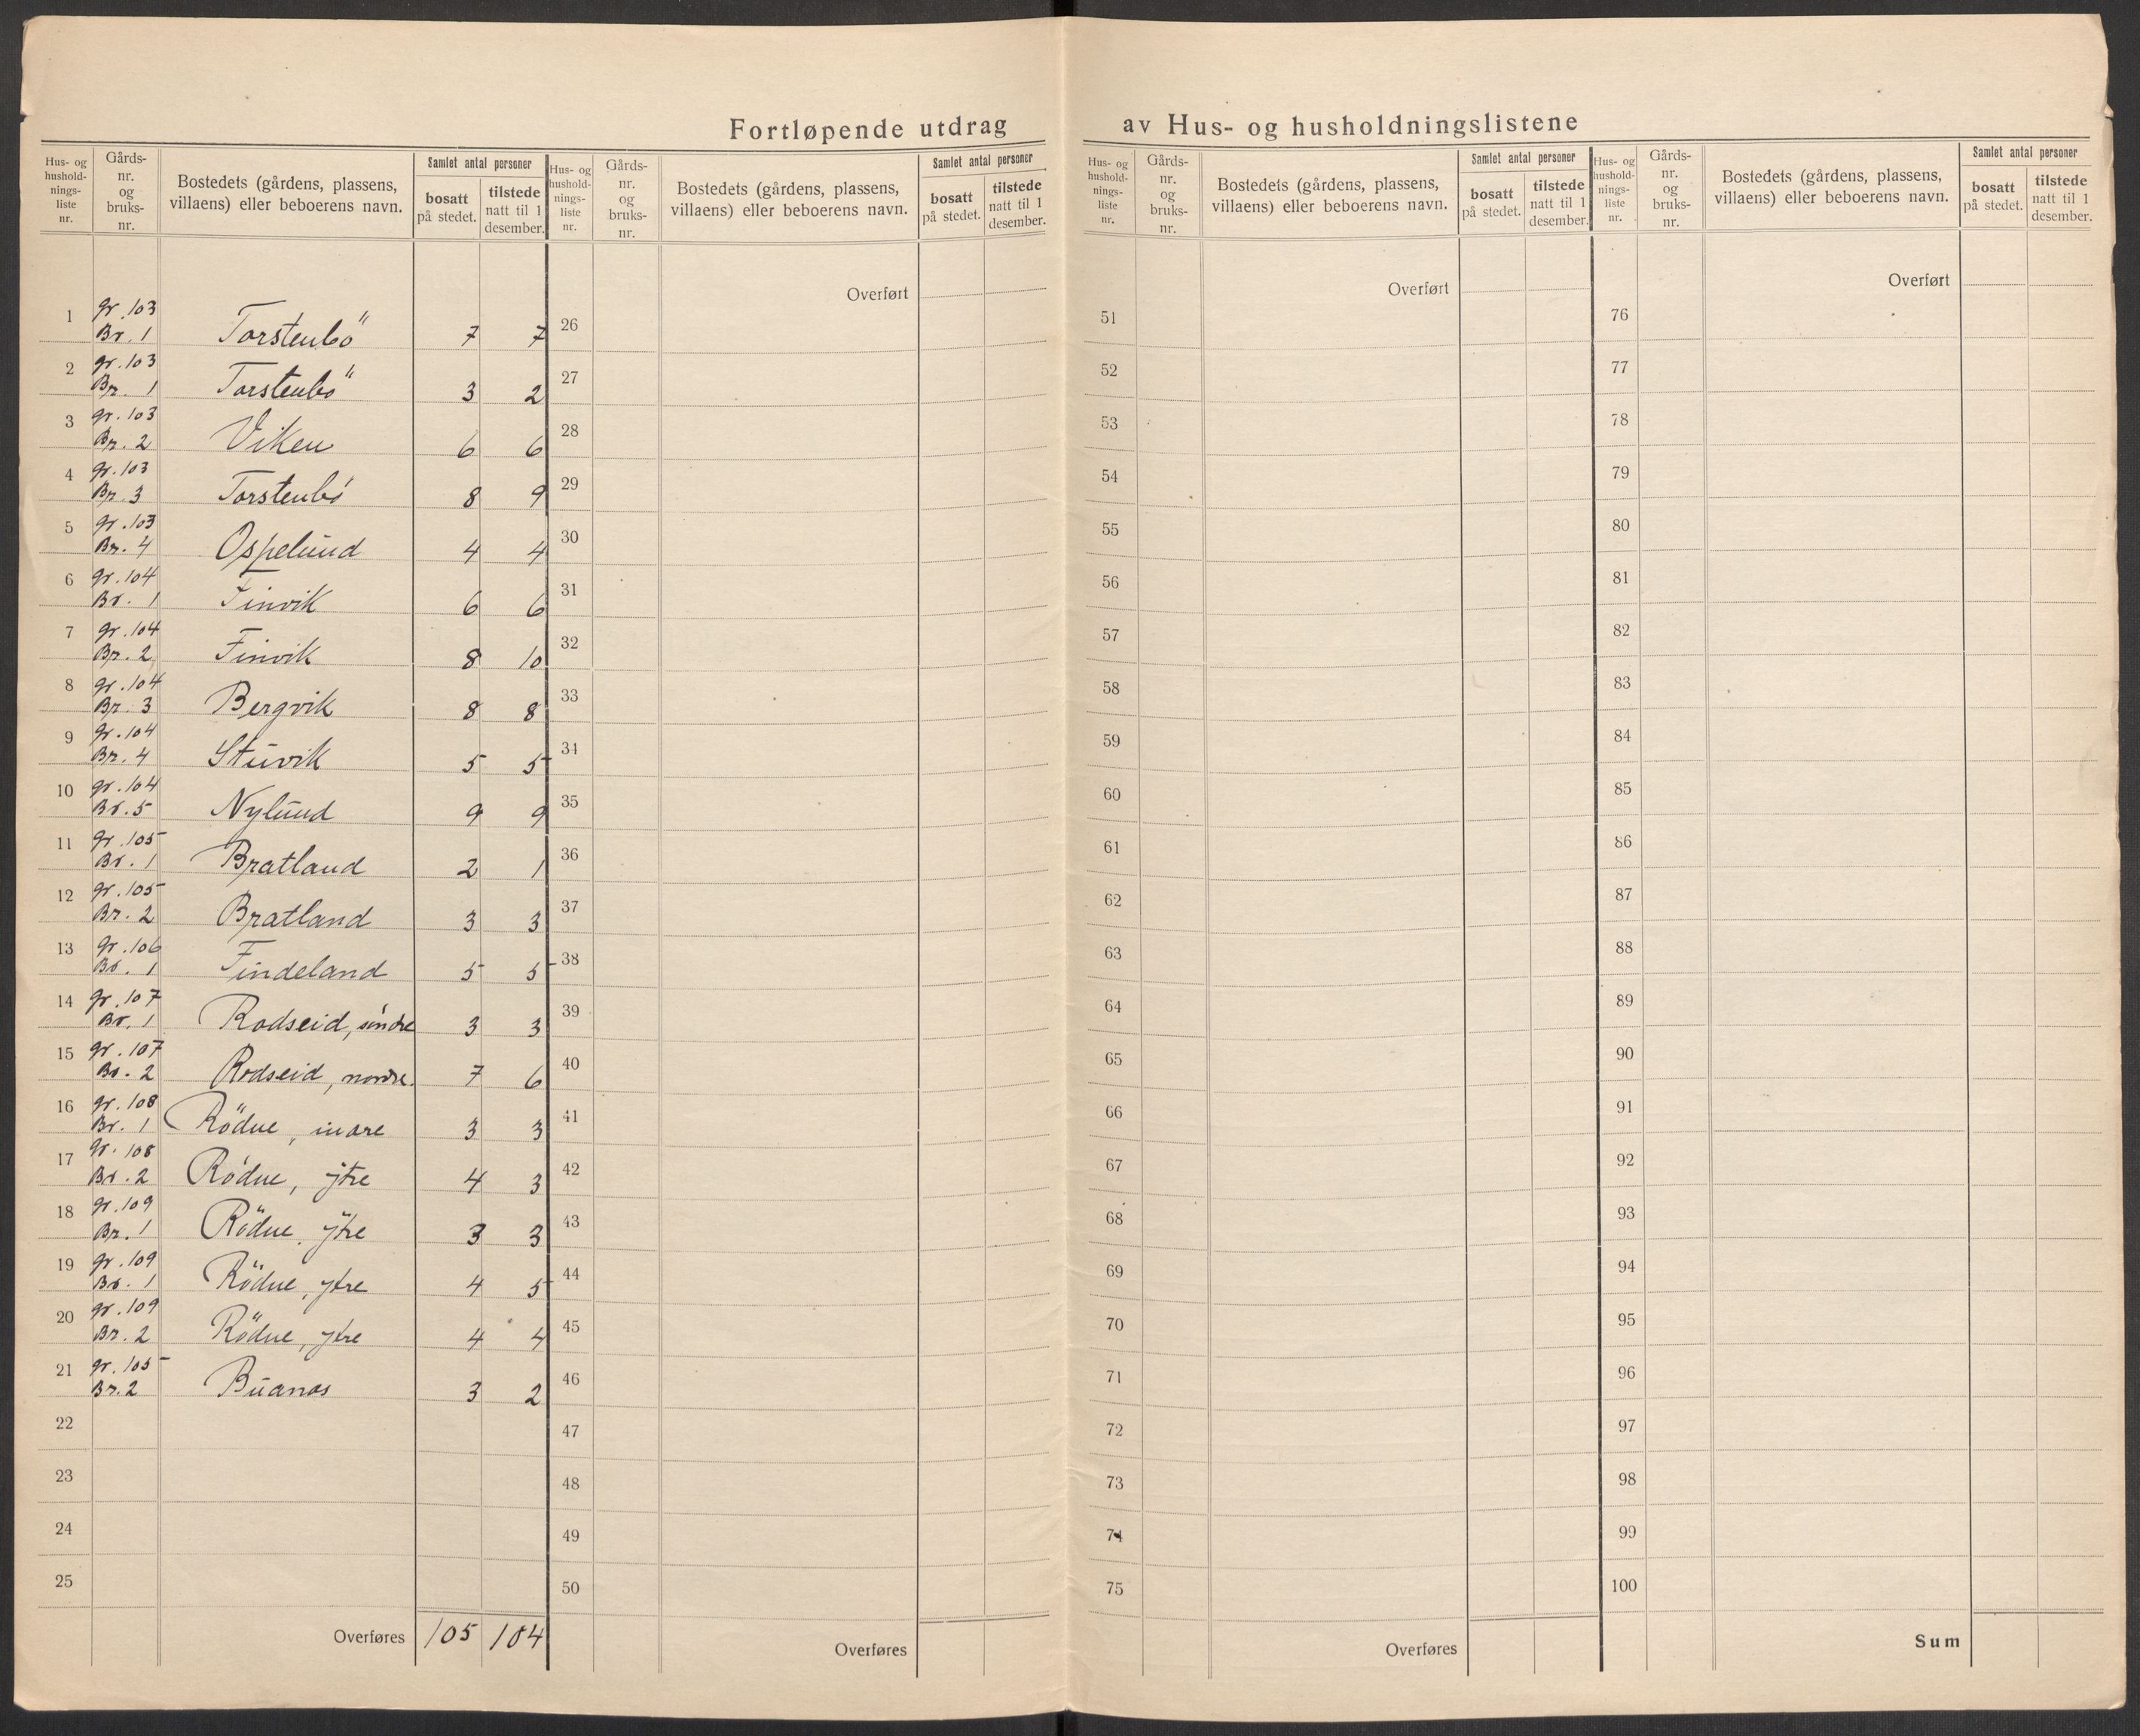 Fortløpende utdrag av Hus- og husholdningslistene
Hus- og hushold- nings- liste nr.
Gårds- nr. og bruks- nr.
Bostedets (gårdens, plassens, villaens) eller beboerens navn.
Samlet antal personer
bosatt på stedet.
tilstede natt til 1 desember.
1 gr. 103 Br. 1 Torstenbö 7 7
2 gr. 103 Br. 1 Torstenbö 3 2
3 gr. 103 Br. 2 Viken 6 6
4 gr. 103 Br. 3 Torstenbö 8 9
5 gr. 103 Br. 4 Ospelund 4 4
6 gr. 104 Br. 1 Finvik 6 6
7 gr. 104 Br. 2 Finvik 8 10
8 gr. 104 Br. 3 Bergvik 8 8
9 gr. 104 Br. 4 Stuvik 5 5
10 gr. 104 Br. 5 Nylund 9 9
11 gr. 105 Br. 1 Bratland 2 1
12 gr. 105 Br. 2 Bratland 3 3
13 gr. 106 Br. 1 Findeland 5 5
14 gr. 107 Br. 1 Rodseid, söndre 3 3
15 gr. 107 Br. 2 Rodseid, nordre. 7 6
16 gr. 108 Br. 1 Rödne, indre 3 3
17 gr. 108 Br. 2 Rödne, ytre 4 3
18 gr. 109 Br. 1 Rödne, ytre 3 3
19 gr. 109 Br. 1 Rödne, ytre 4 5
20 gr. 109 Br. 2 Rödne, ytre 4 4
21 gr. 105 Br. 2 Buanes 3 2
22
23
24
25
Overføres 105 104
Hus- og hushold- nings- liste nr.
Gårds- nr. og bruks- nr.
Bostedets (gårdens, plassens, villaens) eller beboerens navn.
Samlet antal personer
bosatt på stedet.
tilstede natt til 1 desember.
Overført
26
27
28
29
30
31
32
33
34
35
36
37
38
39
40
41
42
43
44
45
46
47
48
49
50
Overføres
Hus- og hushold- nings- liste nr.
Gårds- nr. og bruks- nr.
Bostedets (gårdens, plassens, villaens) eller beboerens navn.
Samlet antal personer
bosatt på stedet.
tilstede natt til 1 desember.
Overført
51
52
53
54
55
56
57
58
59
60
61
62
63
64
65
66
67
68
69
70
71
72
73
74
75
Overføres
Hus- og hushold- nings- liste nr.
Gårds- nr. og bruks- nr.
Bostedets (gårdens, plassens, villaens) eller beboerens navn.
Samlet antal personer
bosatt på stedet.
tilstede natt til 1 desember.
Overført
76
77
78
79
80
81
82
83
84
85
86
87
88
89
90
91
92
93
94
95
96
97
98
99
100
Sum